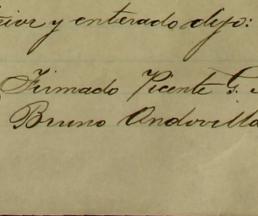 y enterado dijo:
Firmado Vicente G.
Bruno Andovilla